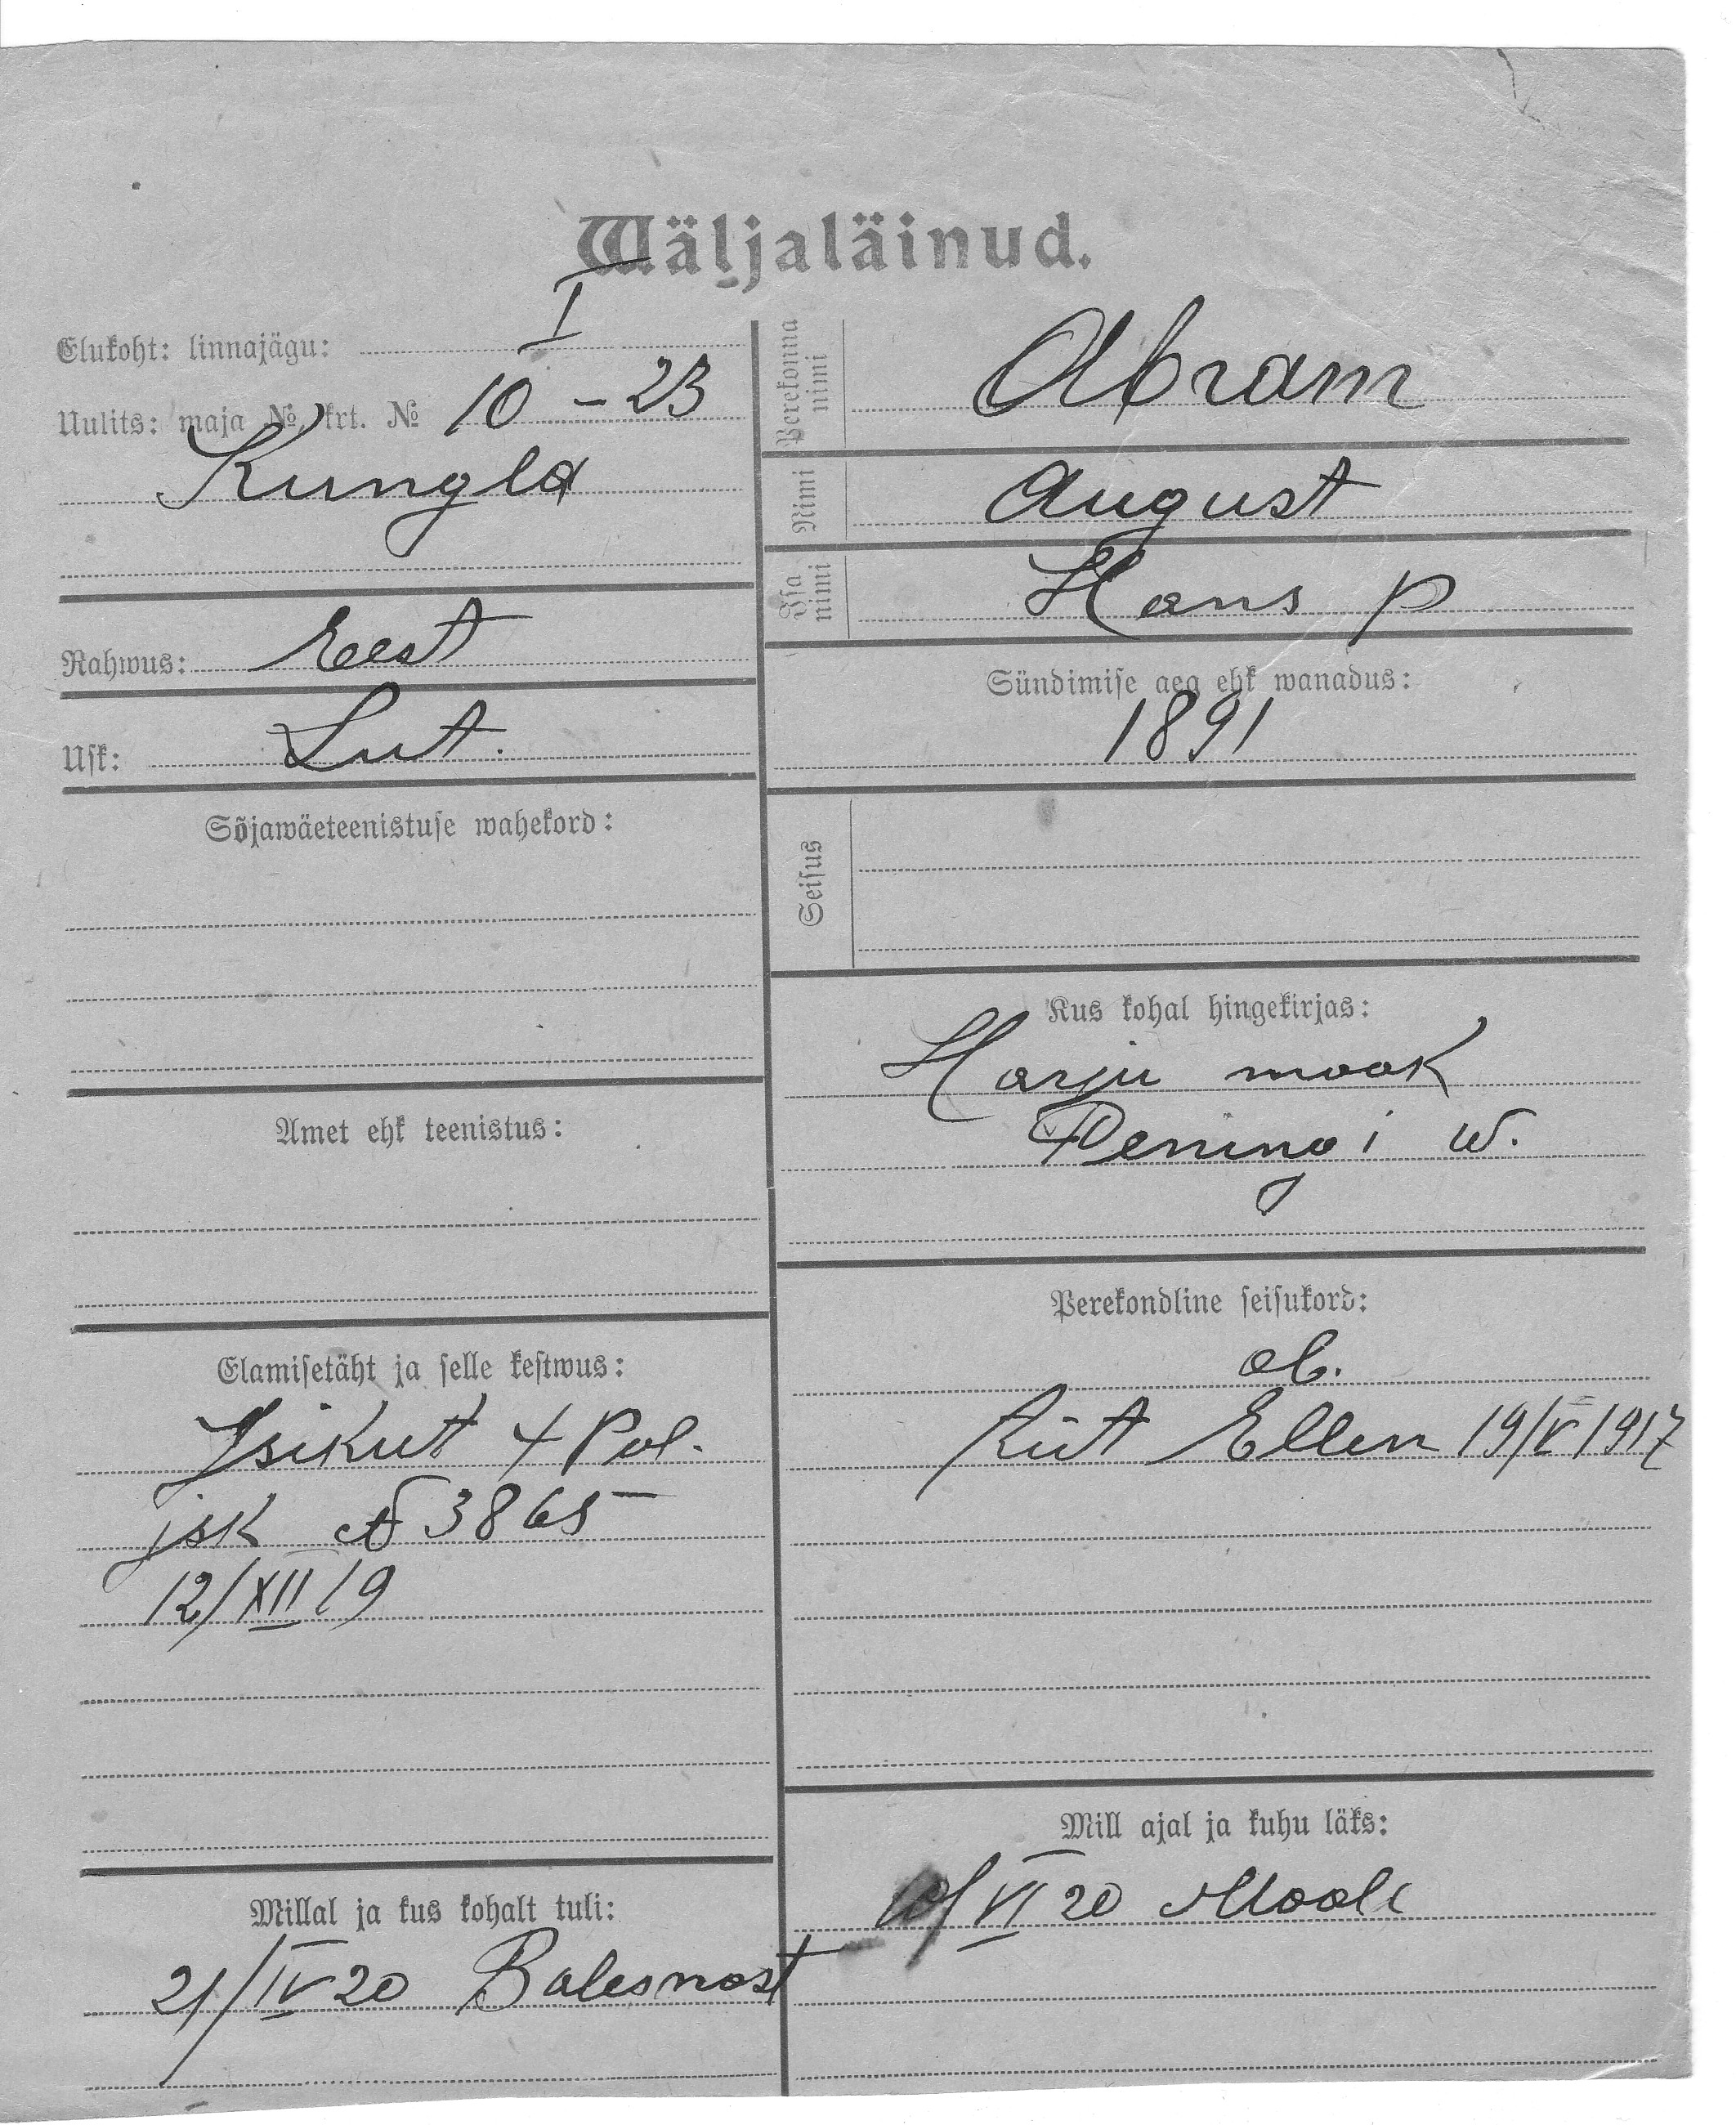 Wäljaläinud.
Elukoht: linnajägu: I
Uulits: maja №, krt. № 10 – 23
Kungla
Rahwus: Eest
Usk: Lut.
Sõjawäeteenistuse wahekord:
Amet ehk teenistus:
Elamisetäht ja selle kestwus:
Isikut 4 Pol.
jsk № 3865
12/XII 19
Millal ja kus kohalt tuli:
21/IV 20 Balesnost
Perekonna nimi Abram
Nimi August
Isa nimi Hans p
Sündimise aeg ehk wanadus:
1891
Seisus
Kus kohal hingekirjas:
Harju maak
Peningi w.
Perekondline seisukord:
ab.
Rut Ellen 19/V 1917
Mill ajal ja kuhu läks:
VI 20 Maale